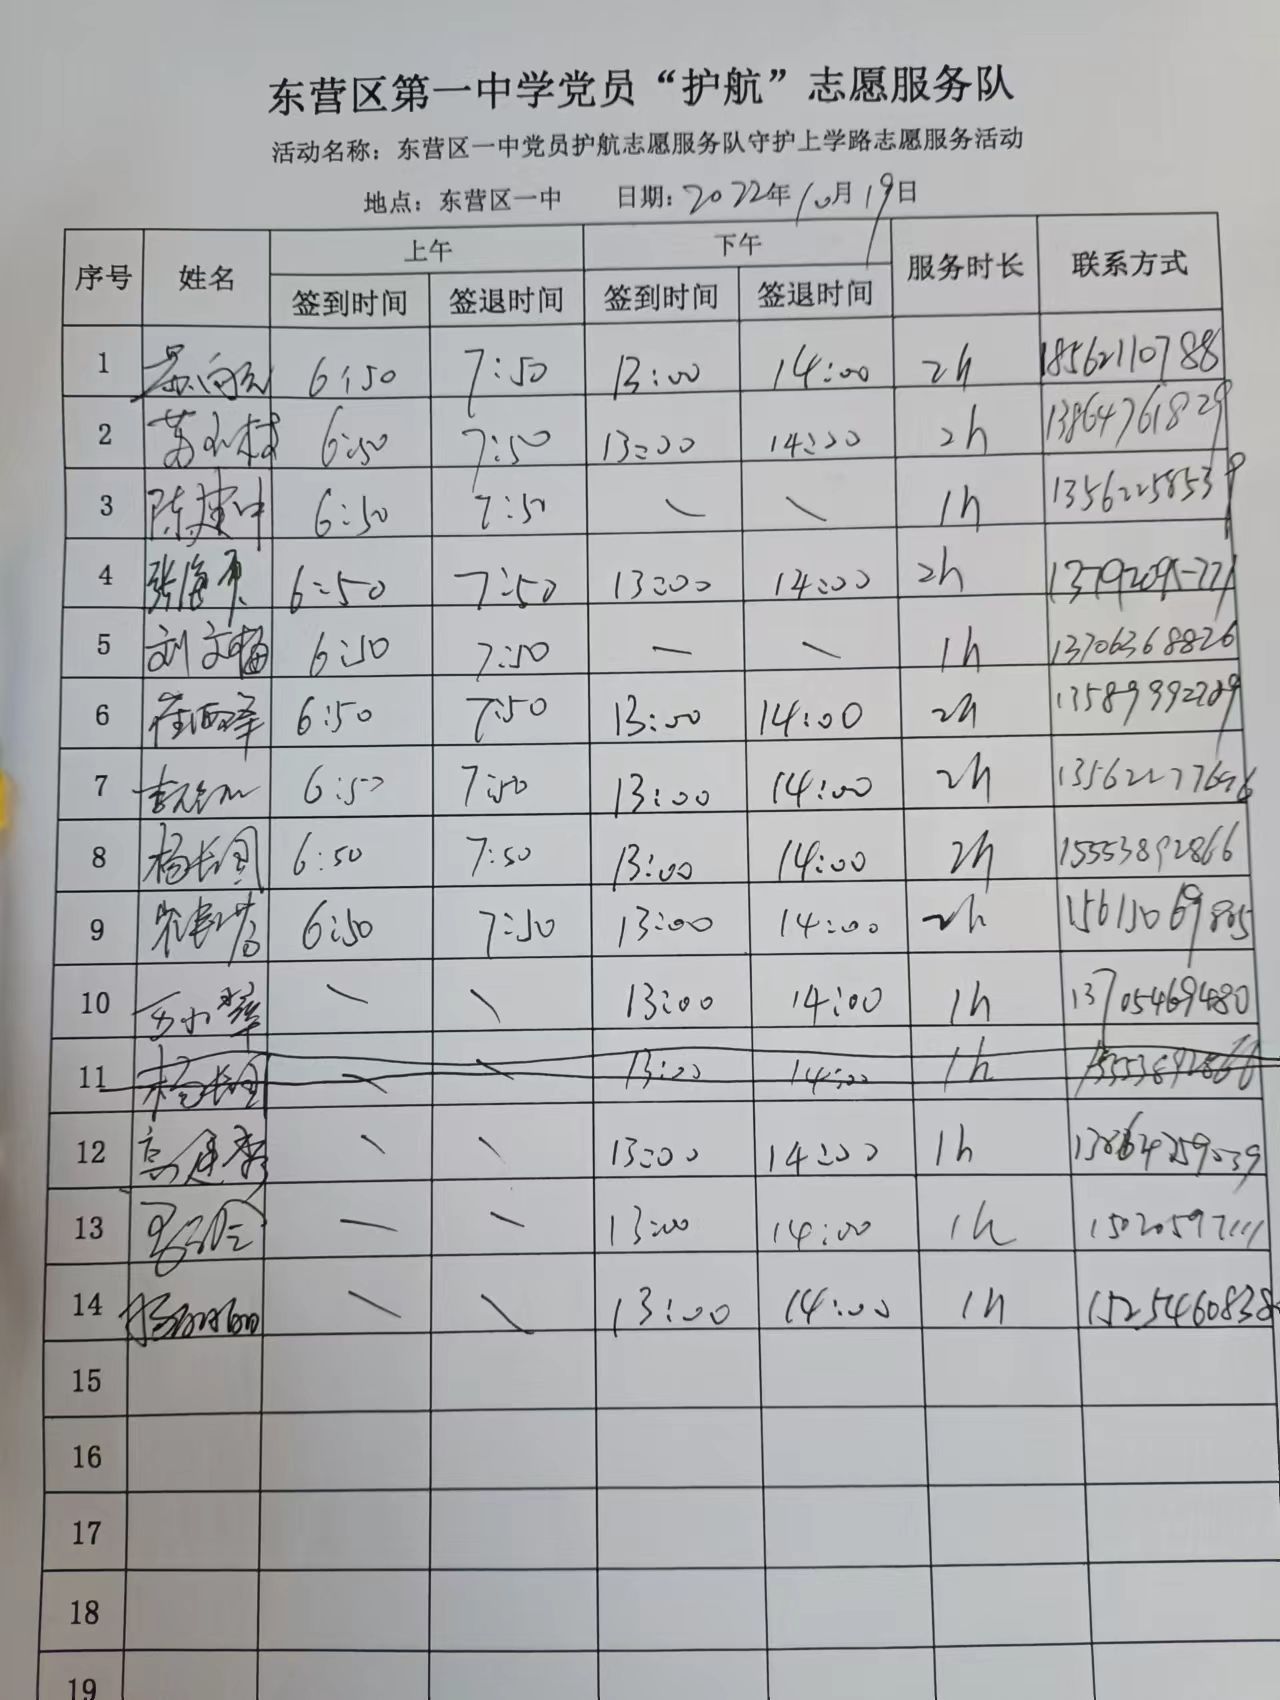 东营区第一中学党员“护航”志愿服务队
活动名称：东营区一中党员护航志愿服务队守护上学路志愿服务活动
地点：东营区一中 日期：2022年10月19日
序号 姓名 上午 下午 服务时长 联系方式
签到时间 签退时间 签到时间 签退时间
1 6:50 7:50 13:00 14:00 2h 18562110788
2 苏小林 6:50 7:50 13:00 14:00 2h 13864761829
3 陈建中 6:50 7:50 — — 1h 13562258539
4 6:50 7:50 13:00 14:00 2h
5 刘文梅 6:50 7:50 — — 1h 13706368826
6 6:50 7:50 13:00 14:00 2h
7 6:50 7:50 13:00 14:00 2h
8 杨长国 6:50 7:50 13:00 14:00 2h 15553892866
9 6:50 7:50 13:00 14:00 2h
10 — — 13:00 14:00 1h 13705469480
11 杨长国 — — 13:00 14:00 1h 15553892866
12 — — 13:00 14:00 1h
13 — — 13:00 14:00 1h
14 — — 13:00 14:00 1h
15
16
17
18
19